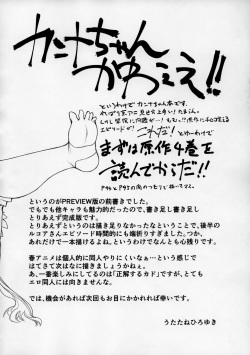 カンナちゃん
かわゑゑ!!
というわけでカンナちゃん本です。
これだ!
とゆーわけで
まずは原作4巻を
読んでからだ!!
というのがPREVIEW版の前書きでした。
でもでも他キャラも魅力的だったので、書き足し書き足し
とりあえず完成版です。
とりあえずというのは描き足りなかったなということで、後半の
ルコアさんエピソード時間的にも端折りすぎました。つか、
あれだけで一本描けるよね。というわけでなんとも心残りです。
春アニメは個人的に同人やりにくいなぁ…という感じで
はてさて次はなに描きましょうかねぇ。
あ、一番楽しみにしてるのは「正解するカド」ですが、とても
エロ同人には向きませんな。
では、機会があれば次回もお目にかかれれば幸いです。
うたたねひろゆき